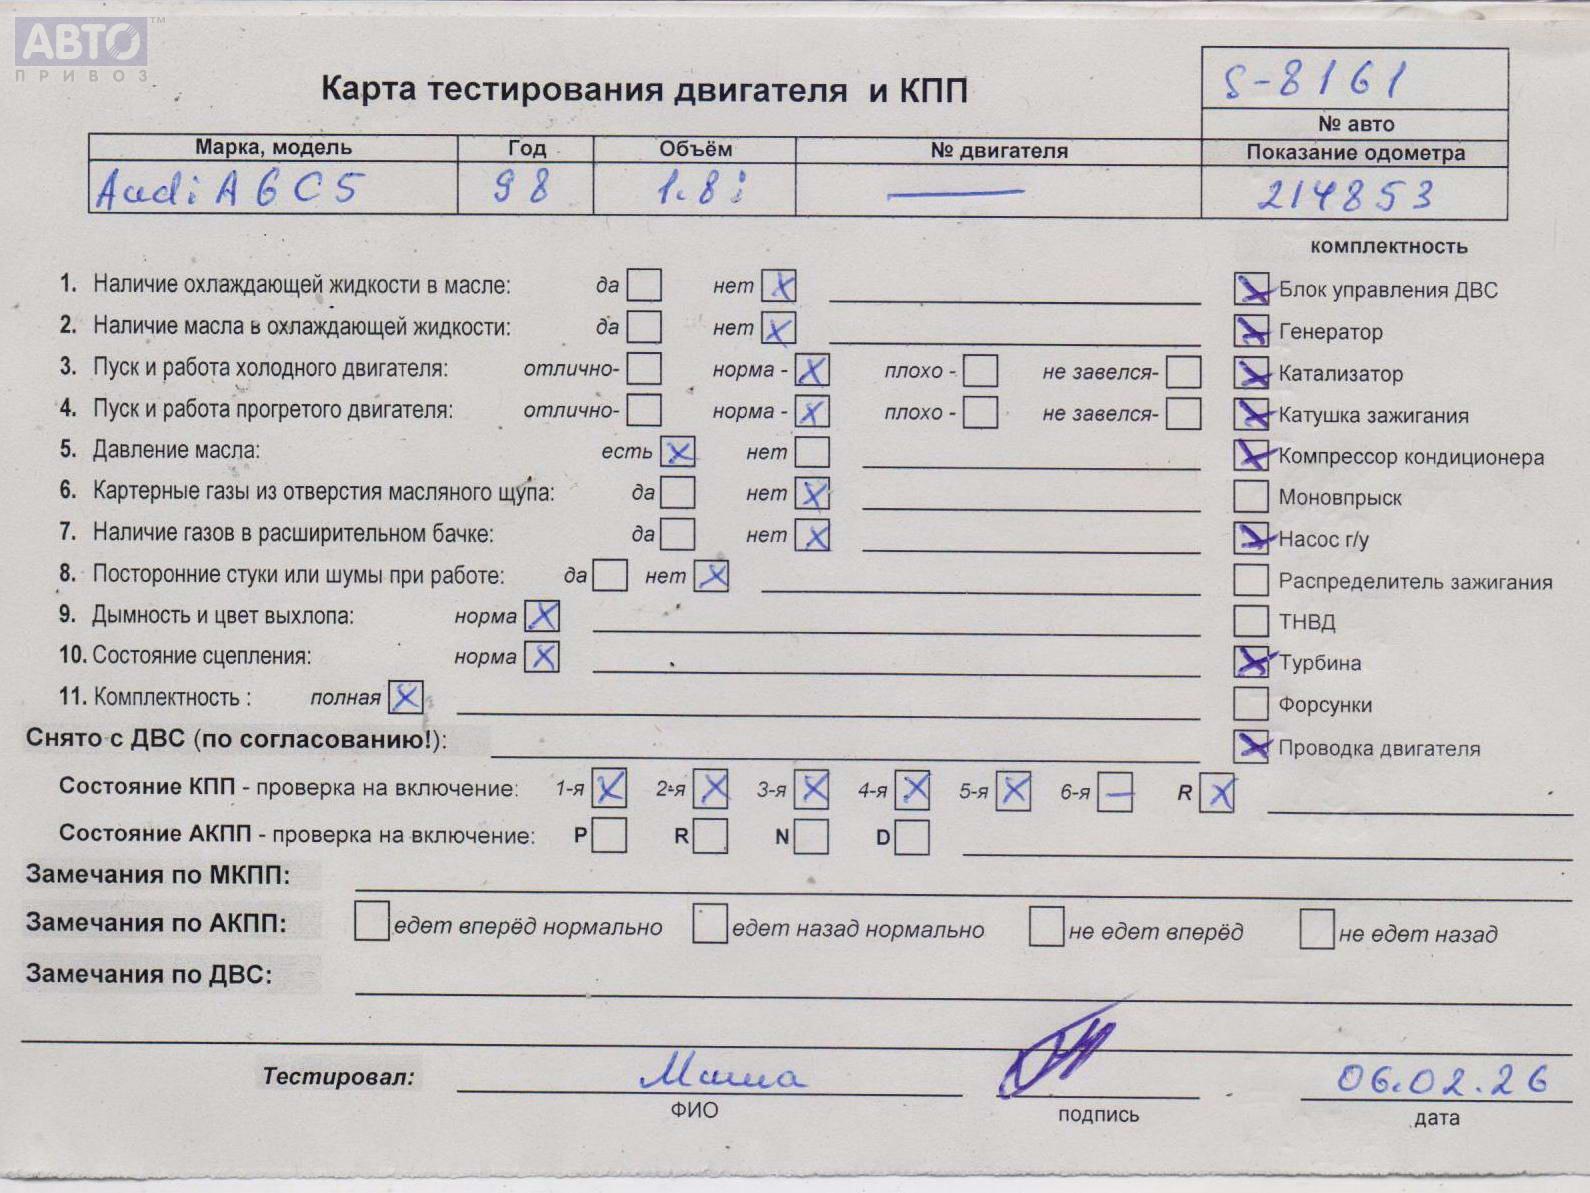 АВТО™
ПРИВОЗ
Карта тестирования двигателя и КПП
S-8161
№ авто
Марка, модель Год Объём № двигателя Показание одометра
Audi A6 C5 98 1.8i — 214853
комплектность
1. Наличие охлаждающей жидкости в масле: да нет X
2. Наличие масла в охлаждающей жидкости: да нет X
3. Пуск и работа холодного двигателя: отлично- норма - X плохо - не завелся-
4. Пуск и работа прогретого двигателя: отлично- норма - X плохо - не завелся-
5. Давление масла: есть X нет
6. Картерные газы из отверстия масляного щупа: да нет X
7. Наличие газов в расширительном бачке: да нет X
8. Посторонние стуки или шумы при работе: да нет X
9. Дымность и цвет выхлопа: норма X
10. Состояние сцепления: норма X
11. Комплектность : полная X
X Блок управления ДВС
X Генератор
X Катализатор
X Катушка зажигания
X Компрессор кондиционера
Моновпрыск
X Насос г/у
Распределитель зажигания
ТНВД
X Турбина
Форсунки
X Проводка двигателя
Снято с ДВС (по согласованию!):
Состояние КПП - проверка на включение: 1-я X 2-я X 3-я X 4-я X 5-я X 6-я — R X
Состояние АКПП - проверка на включение: P R N D
Замечания по МКПП:
Замечания по АКПП: едет вперёд нормально едет назад нормально не едет вперёд не едет назад
Замечания по ДВС:
Тестировал: Миша 06.02.26
ФИО подпись дата